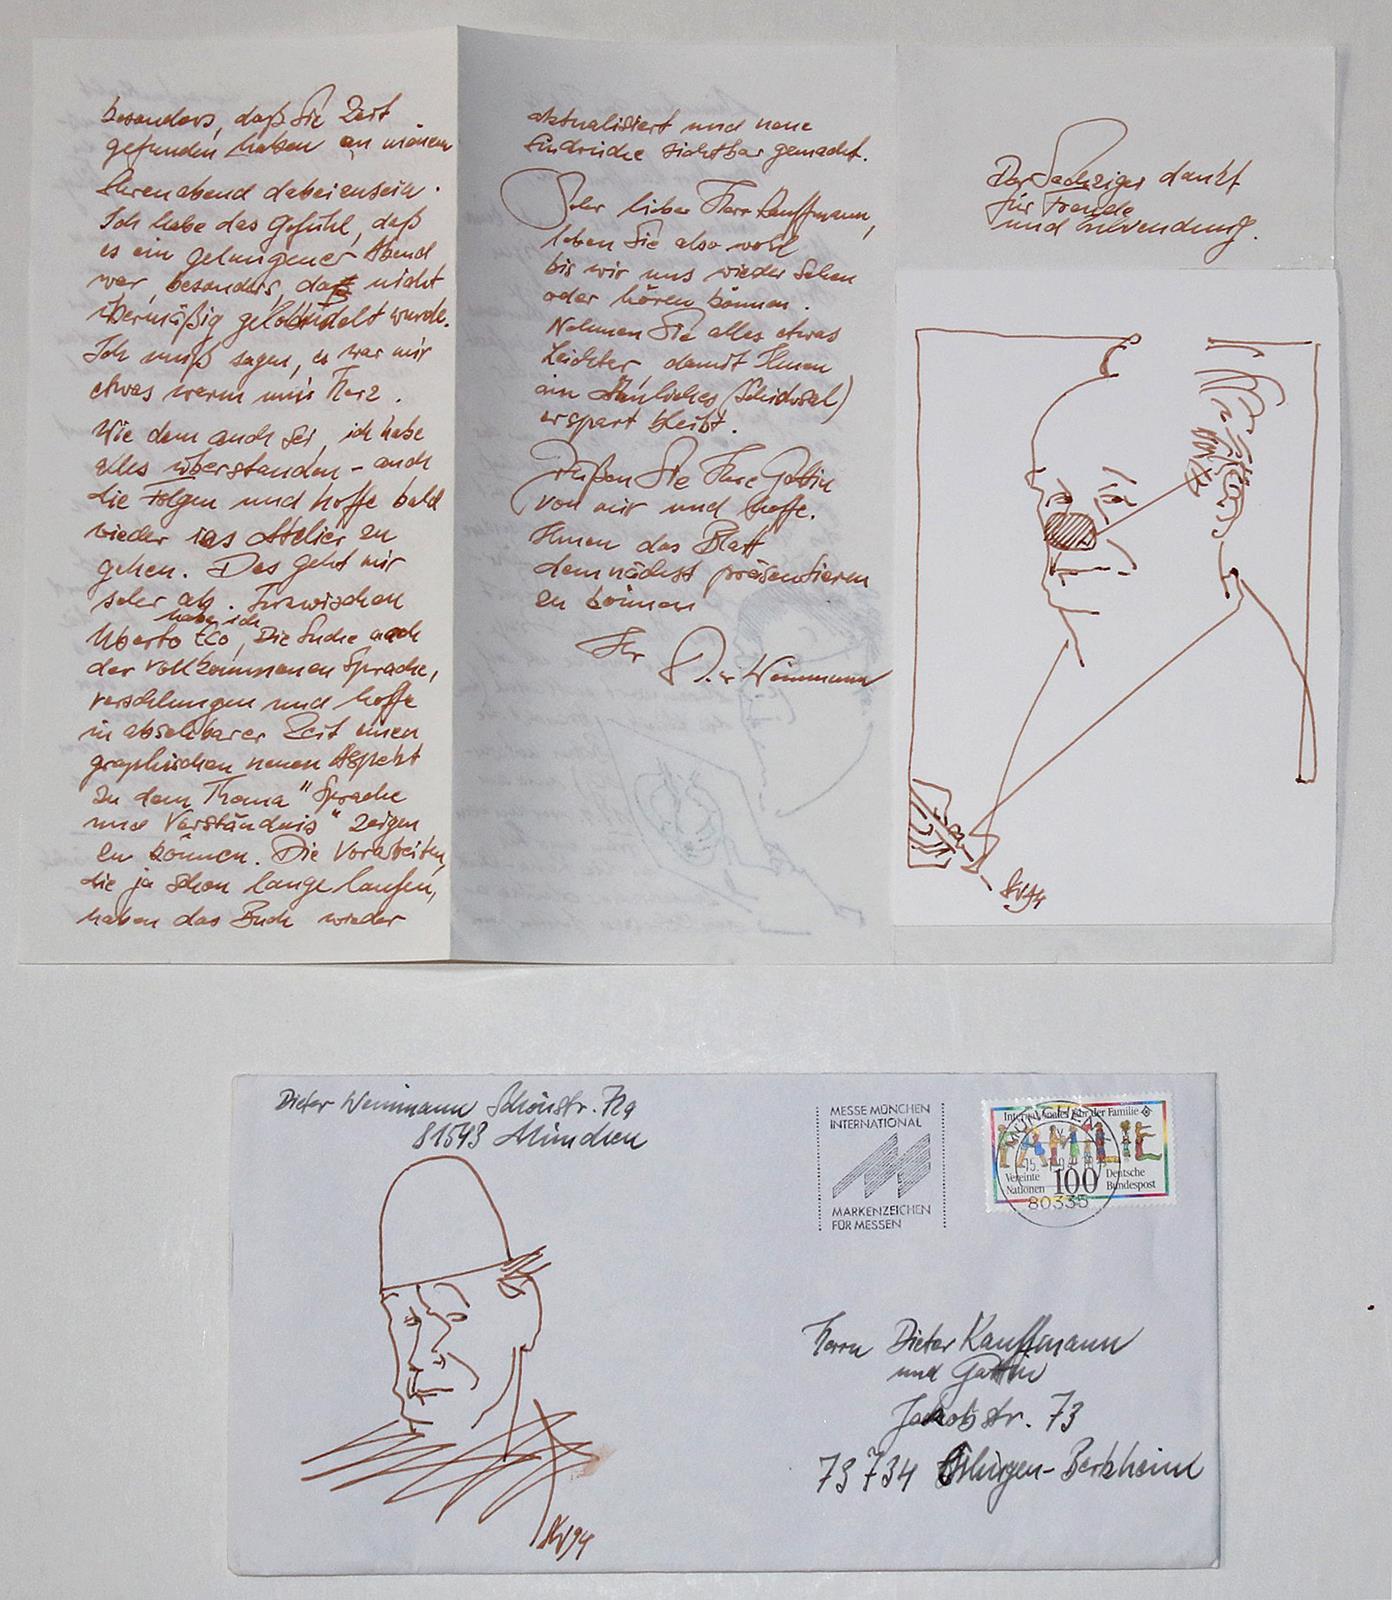 besonders, daß Sie Zeit
gefunden haben an meinem
Ehrenabend dabeizusein.
Ich habe das Gefühl, daß
es ein gelungener Abend
war, besonders, daß nicht
übermäßig gelobhudelt wurde.
Ich muß sagen, es war mir
etwas warm um's Herz.
Wie dem auch sei, ich habe
alles überstanden – auch
die Folgen und hoffe bald
wieder ins Atelier zu
gehen. Das geht mir
sehr ab. Inzwischen
habe ich
Umberto Eco, Die Suche nach
der vollkommenen Sprache,
verschlungen und hoffe
in absehbarer Zeit einen
graphischen neuen Aspekt
zu dem Thema "Sprache
und Verständnis" zeigen
zu können. Die Vorarbeiten,
die ja schon lange laufen,
haben das Buch wieder
aktualisiert und neue
Eindrücke sichtbar gemacht.
Sehr lieber Herr Kauffmann,
leben Sie also wohl
bis wir uns wieder sehen
oder hören können.
Nehmen Sie alles etwas
Leichter, damit Ihnen
ein ähnliches (Schicksal)
erspart bleibt.
Grüßen Sie Ihre Gattin
von mir und hoffe.
Ihnen das Blatt
demnächst präsentieren
zu können
Ihr Dieter Weinmann
Der Sechziger dankt
für Freude
und Zuwendung.
94
Dieter Weinmann Schönstr. 72a
81543 München
MESSE MÜNCHEN
INTERNATIONAL
MARKENZEICHEN
FÜR MESSEN
Internationales Jahr der Familie
FAMILIE
Vereinte
Nationen
100
Deutsche
Bundespost
MÜNCHEN
80335
Herrn Dieter Kauffmann
und Gattin
Jakobstr. 73
73734 Esslingen-Berkheim
94